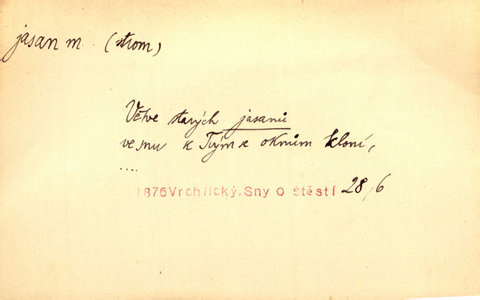 jasan m. (strom)
Větve starých jasanů
ve snu k Tvým se oknům kloní,
....
1876 Vrchlický, Sny o štěstí 28/6